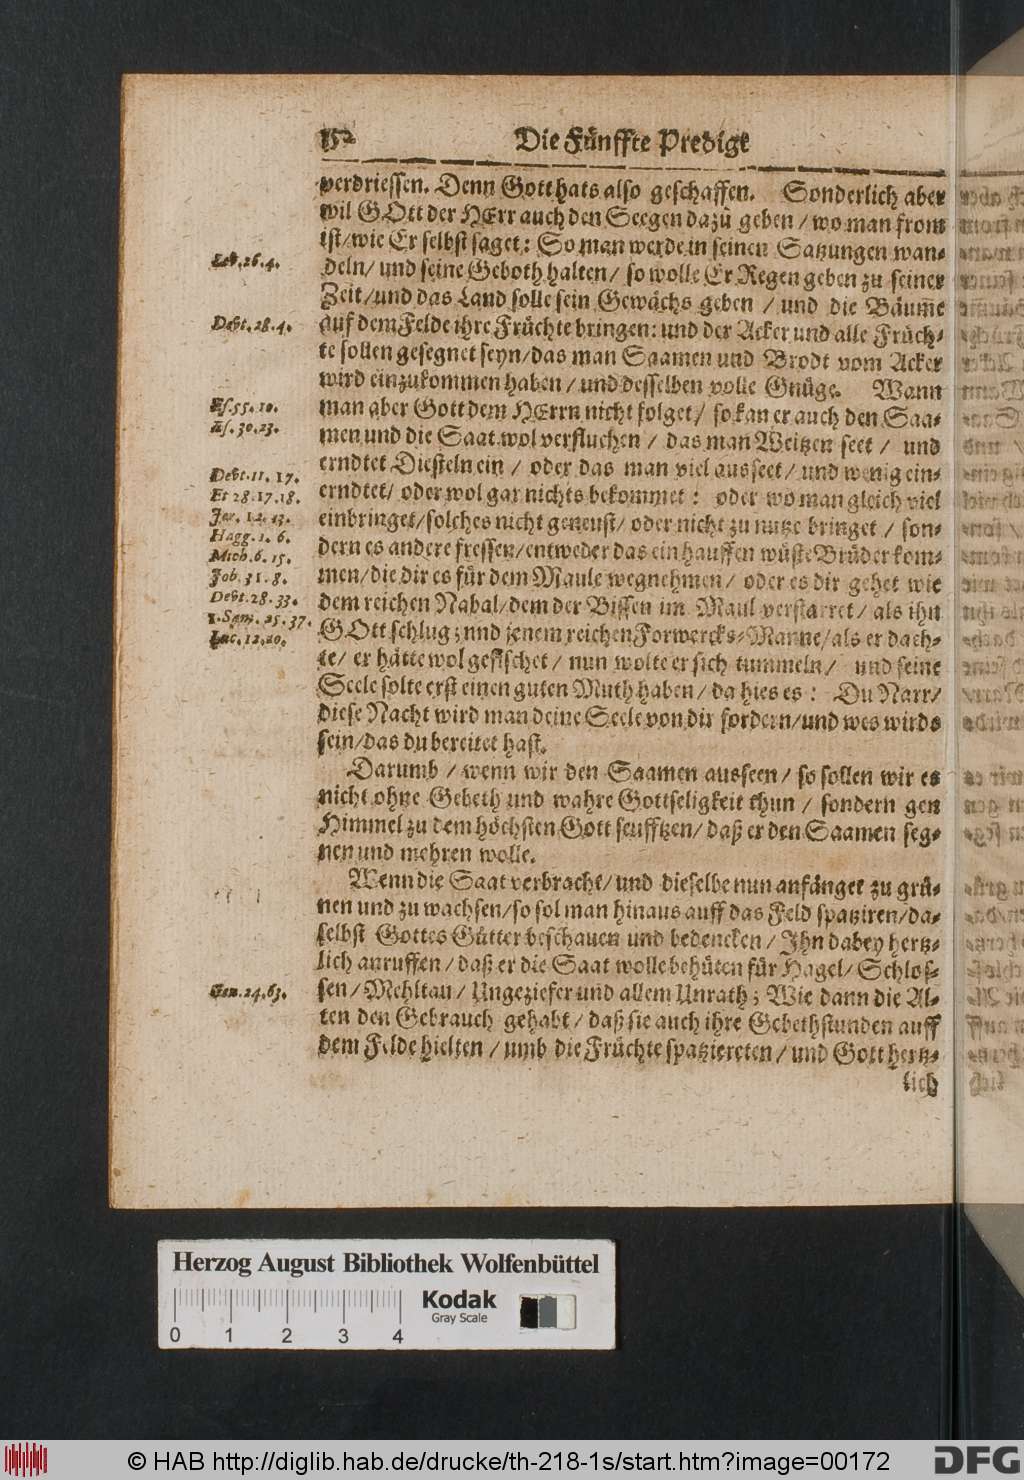 152 Die Fünffte Predigt
verdriessen. Denn Gott hats also geschaffen. Sonderlich aber
wil GOtt der HErr auch den Seegen dazu geben / wo man from
ist / wie Er selbst saget: So man werde in seinen Satzungen wan-
deln / und seine Geboth halten / so wolle Er Regen geben zu seiner
Zeit / und das Land solle sein Gewächs geben / und die Bäume
auf dem Felde ihre Früchte bringen: und der Acker und alle Früch-
te sollen gesegnet seyn / das man Saamen und Brodt vom Acker
wird einzukommen haben / und desselben volle Gnüge. Wann
man aber Gott dem HErrn nicht folget / so kan er auch den Saa-
men und die Saat wol verfluchen / das man Weitzen seet / und
erndtet Diesteln ein / oder das man viel ausseet / und wenig ein-
erndtet / oder wol gar nichts bekommet: oder wo man gleich viel
einbringet / solches nicht geneust / oder nicht zu nutze bringet / son-
dern es andere fressen / entweder das ein hauffen wüste Brüder kom-
men / die dir es für dem Maule wegnehmen / oder es dir gehet wie
dem reichen Nabal / dem der Bissen im Maul verstarret / als ihn
GOtt schlug; und jenem reichen Forwercks-Manne / als er dach-
te / er hätte wol gefischet / nun wolte er sich tummeln / und seine
Seele solte erst einen guten Muth haben / da hies es: Du Narr /
diese Nacht wird man deine Seele von dir fordern / und wes wirds
sein / das du bereitet hast.
Darumb / wenn wir den Saamen ausseen / so sollen wir es
nicht ohne Gebeth und wahre Gottseligkeit thun / sondern gen
Himmel zu dem höchsten Gott seufftzen / daß er den Saamen seg-
nen und mehren wolle.
Wenn die Saat verbracht / und dieselbe nun anfänget zu grü-
nen und zu wachsen / so sol man hinaus auff das Feld spatziren / da-
selbst Gottes Gütter beschauen und bedencken / Ihn dabey hertz-
lich anruffen / daß er die Saat wolle behüten für Hagel / Schlos-
sen / Mehltau / Ungeziefer und allem Unrath; Wie dann die Al-
ten den Gebrauch gehabt / daß sie auch ihre Gebethstunden auff
dem Felde hielten / umb die Früchte spatziereten / und Gott hertz-
lich
Lev. 26. 4.
Deut. 28. 4.
Es. 55. 10.
Es. 30. 23.
Deut. 11. 17.
Et 28. 17. 18.
Jer. 12. 13.
Hagg. 1. 6.
Mich. 6. 15.
Job. 31. 8.
Deut. 28. 33.
1. Sam. 25. 37.
Luc. 12. 20.
Gen. 24. 63.
Herzog August Bibliothek Wolfenbüttel
Kodak
Gray Scale
0 1 2 3 4
© HAB http://diglib.hab.de/drucke/th-218-1s/start.htm?image=00172
DFG